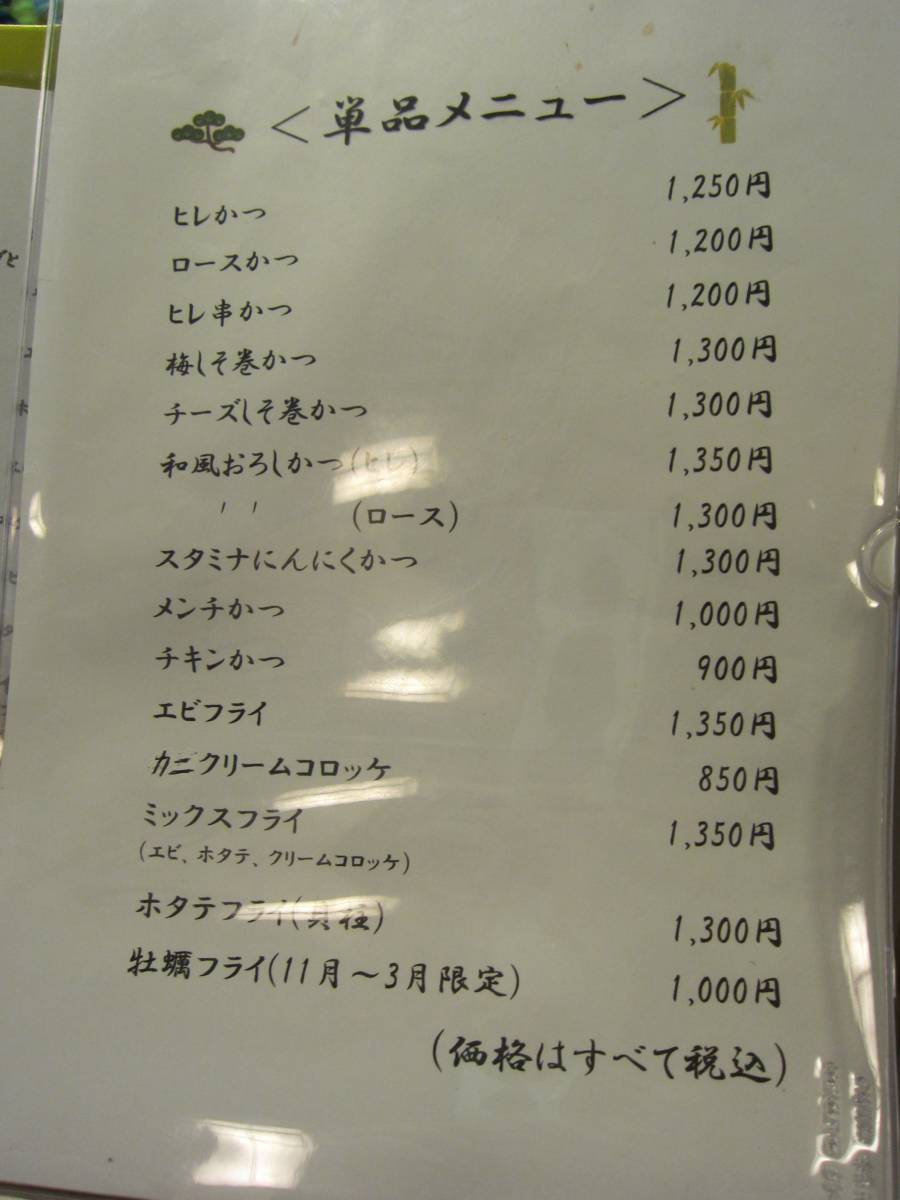 <単品メニュー>
ヒレかつ 1,250円
ロースかつ 1,200円
ヒレ串かつ 1,200円
梅しそ巻かつ 1,300円
チーズしそ巻かつ 1,300円
和風おろしかつ(ヒレ) 1,350円
〃 (ロース) 1,300円
スタミナにんにくかつ 1,300円
メンチかつ 1,000円
チキンかつ 900円
エビフライ 1,350円
カニクリームコロッケ 850円
ミックスフライ 1,350円
(エビ、ホタテ、クリームコロッケ)
ホタテフライ(貝柱) 1,300円
牡蠣フライ(11月～3月限定) 1,000円
(価格はすべて税込)